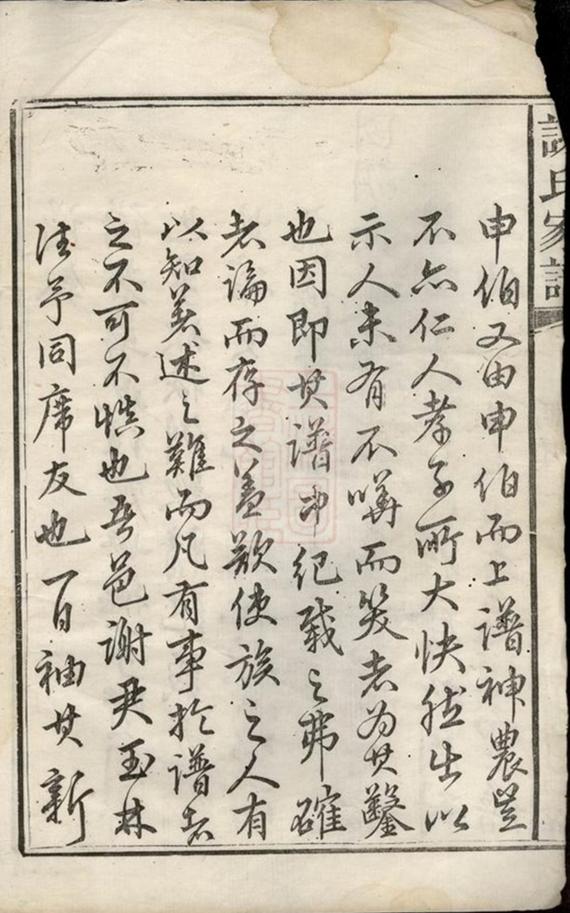 謝氏家譜
申伯又由申伯而上譜神農豈
不亦仁人孝子所大快然出以
示人未有不嘩而笑者為其鑿
也因即其譜中紀載之弗確
者論而存之蓋欲使族之人有
以知著述之難而凡有事於譜者
之不可不慎也吾邑謝尹玉林
法予同席友也一日袖其新